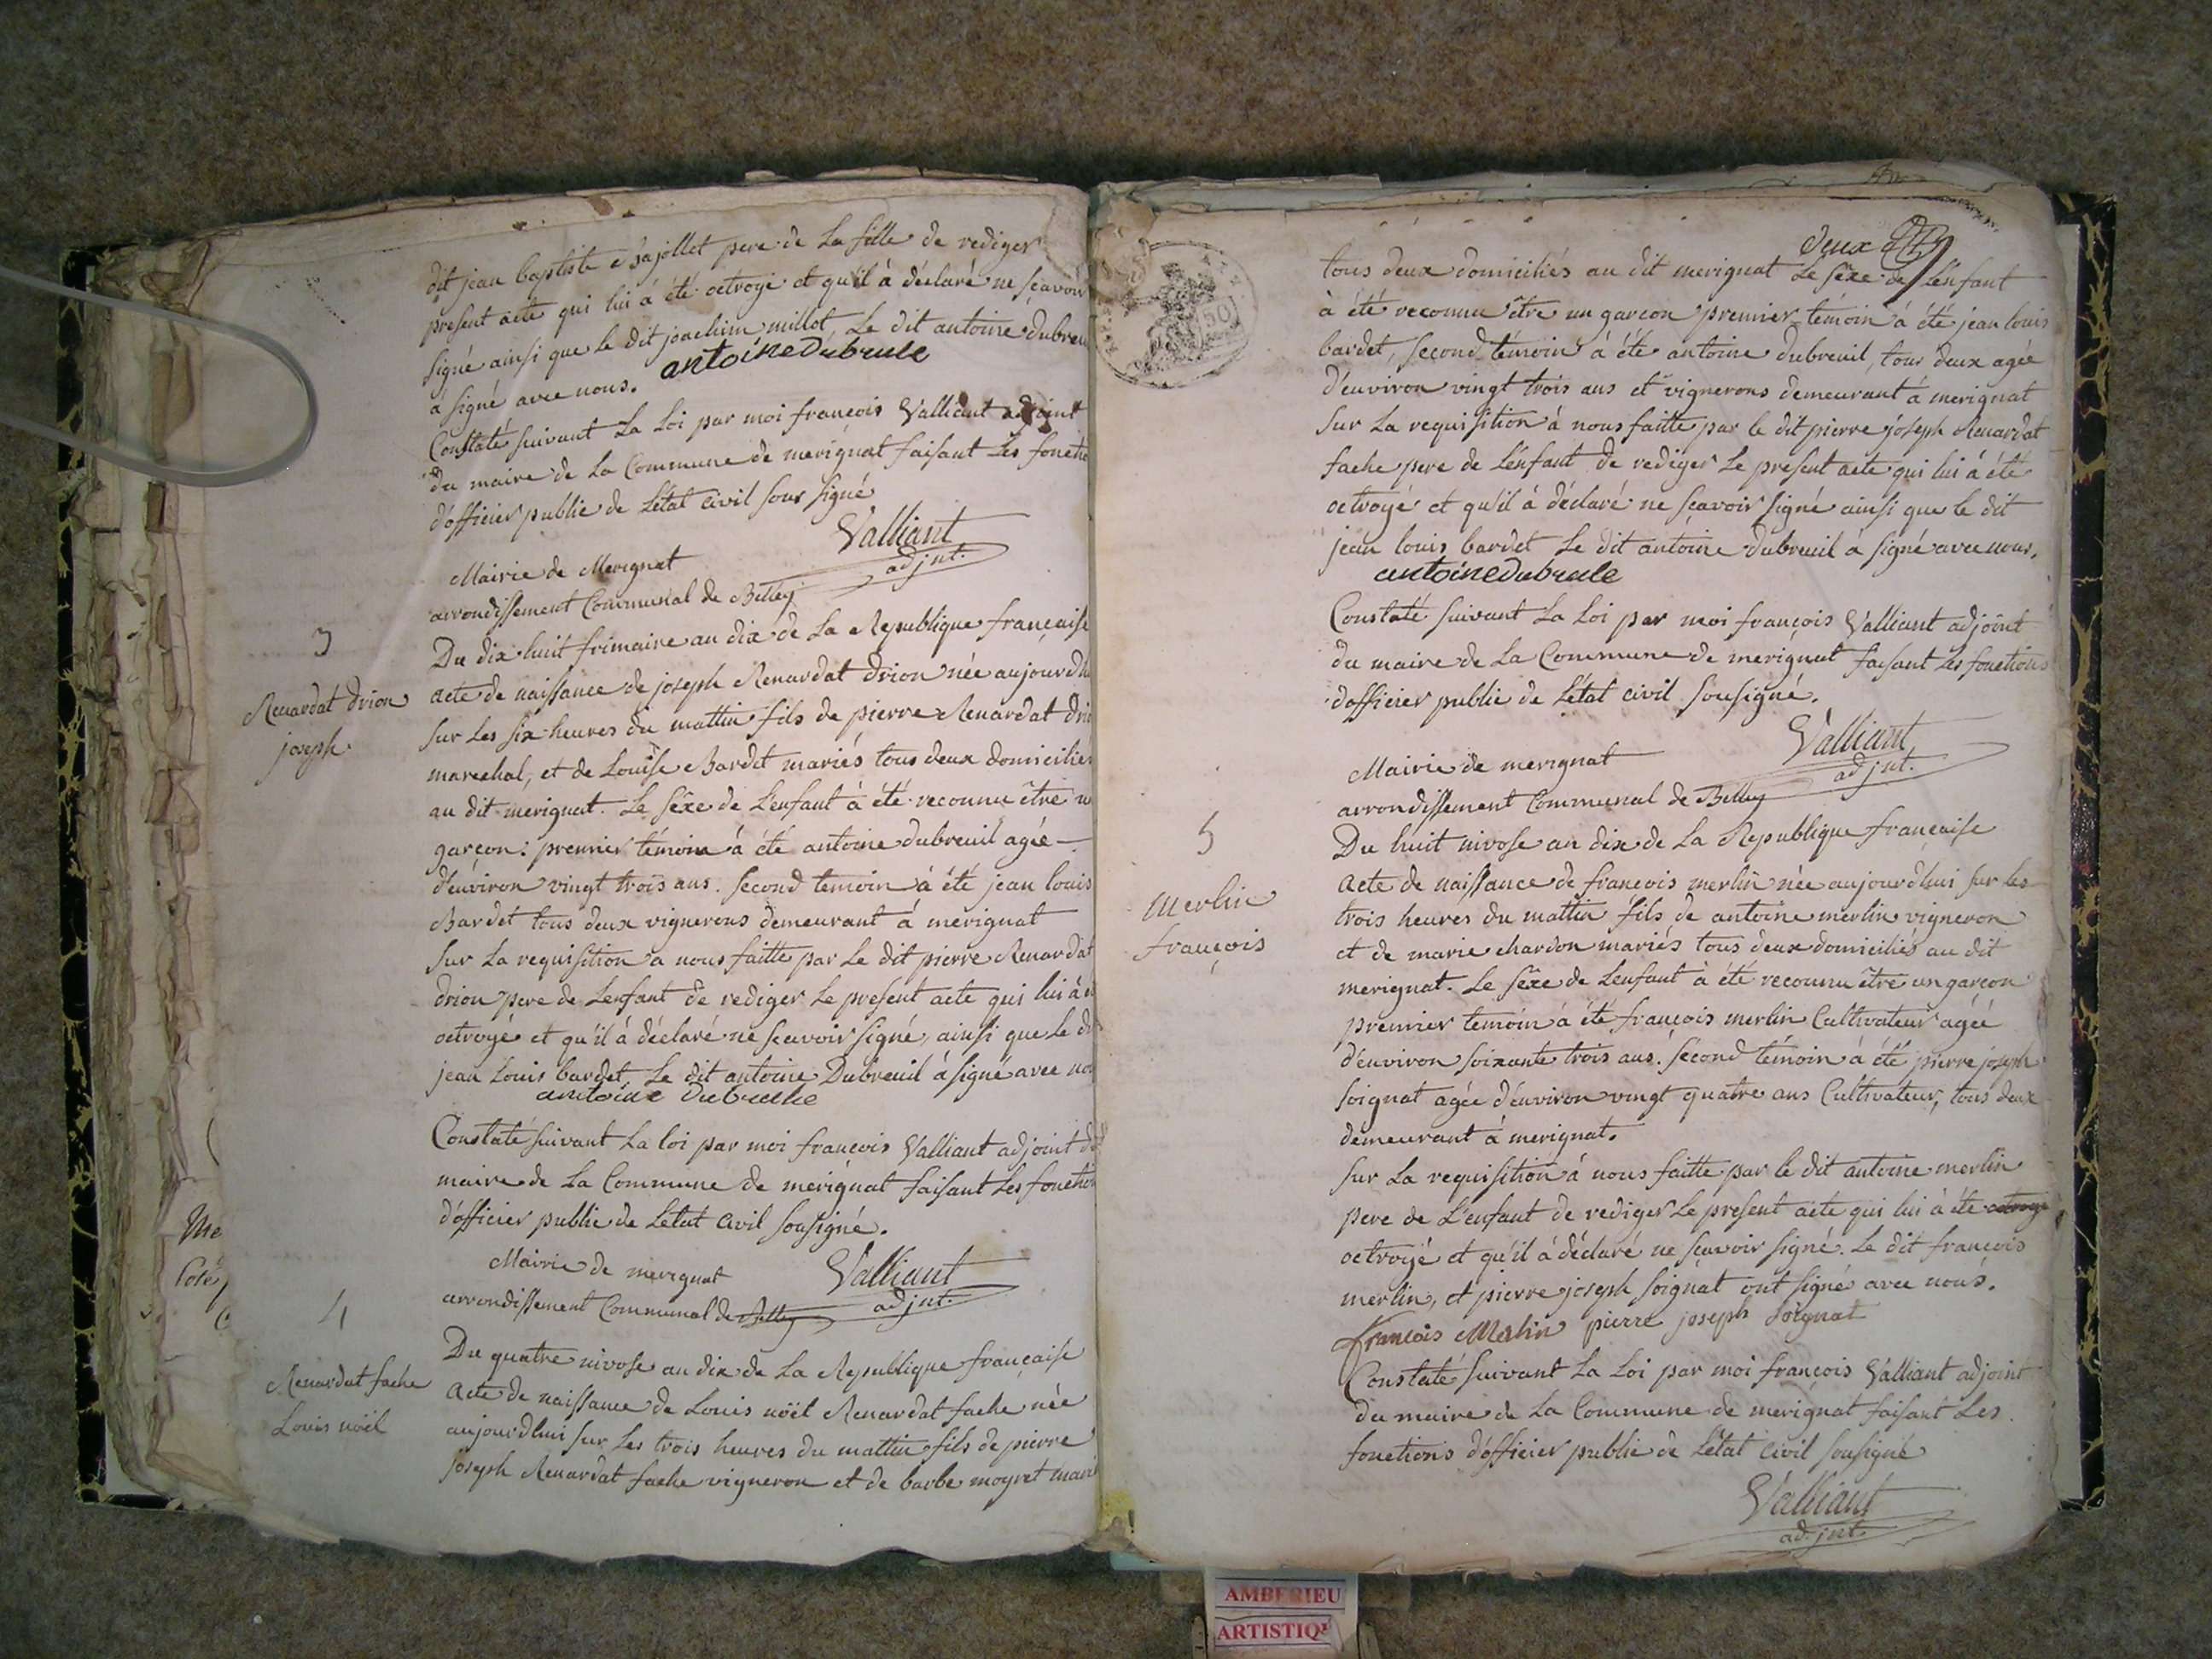 dit jean baptiste Bajollet pere de la fille de rediger
present acte qui lui à été octroyé et qu'il à déclaré ne scavoir
signé ainsi que le dit joachim millot, Le dit antoine dubreu
à signé avec nous. antoine dubreule
Constaté suivant La Loi par moi françois Valliant adjoint
du maire de La Commune de merignat faisant Les fonctio
d'officier public de L'état civil sous signé
Valliant
adjnt.
Mairie de Merignat
arrondissement Communal de Belley
3
Renardat drion
joseph
Du dix huit frimaire an dix de La Republique française
acte de naissance de joseph Renardat drion née aujourd'hu
sur Les six heures du mattin fils de pierre Renardat dri
marechal, et de Louise Bardet mariés tous deux domiciliés
au dit merignat. Le sêxe de L'enfant à été reconnu être u
garçon: premier témoin à été antoine dubreuil agée
d'environ vingt trois ans. second temoin à été jean louis
Bardet tous deux vignerons demeurant à merignat
sur La requisition a nous faitte par Le dit pierre Renardat
drion pere de L'enfant de rediger Le present acte qui lui à é
octroyé et qu'il à déclaré ne scavoir signé, ainsi que Le di
jean Louis bardet, Le dit antoine Dubreuil à signé avec no
antoine Dubreule
Constaté suivant La loi par moi françois Valliant adjoint du
maire de La Commune de merignat faisant Les fonction
d'officier public de L'état civil sousigné.
Valliant
adjnt.
Mairie de merignat
arrondissement Communal de Belley
4
Renardat fache
Louis noël
Du quatre nivose an dix de La Republique française
Acte de naissance de Louis noël Renardat fache née
aujourd'hui sur Les trois heures du mattin fils de pierre
joseph Renardat fache vigneron et de barbe moyret marié
Me
deux
50
tous deux domiciliés au dit merignat Le sêxe de L'enfant
à été reconnu être un garcon premier témoin à été jean louis
bardet, second témoin à été antoine dubreuil, tous deux agée
d'environ vingt trois ans et vignerons demeurant à merignat
sur La requisition à nous faitte par le dit pierre joseph Renardat
fache pere de L'enfant de rediger Le present acte qui lui à été
octroyé et qu'il à déclaré ne scavoir signé ainsi que le dit
jean louis bardet Le dit antoine dubreuil à signé avec nous.
antoine dubreule
Constaté suivant La Loi par moi françois Valliant adjoint
du maire de La Commune de merignat faisant Les fonctions
d'officier public de L'état civil sousigné.
Valliant
adjnt.
Mairie de merignat
arrondissement Communal de Belley
5
Merlin
françois
Du huit nivose an dix de La Republique française
Acte de naissance de françois merlin née aujourd'hui sur Les
trois heures du mattin fils de antoine merlin vigneron
et de marie chardon mariés tous deux domiciliés au dit
merignat. Le sêxe de L'enfant à été reconnu être un garcon
premier temoin à été françois merlin Cultivateur agée
d'environ soixante trois ans. second témoin à été pierre joseph
soignat agée d'environ vingt quatre ans Cultivateur, tous deux
demeurant à merignat.
sur La requisition à nous faitte par le dit antoine merlin
pere de L'enfant de rediger Le present acte qui lui à été octroyé
octroyé et qu'il à déclaré ne scavoir signé. Le dit françois
merlin, et pierre joseph soignat ont signé avec nous.
françois Merlin pierre joseph Soignat
Constaté suivant La Loi par moi françois Valliant adjoint
du maire de La Commune de merignat faisant Les
fonctions d'officier public de L'état civil sousigné
Valliant
adjnt
AMBERIEU
ARTISTIQ